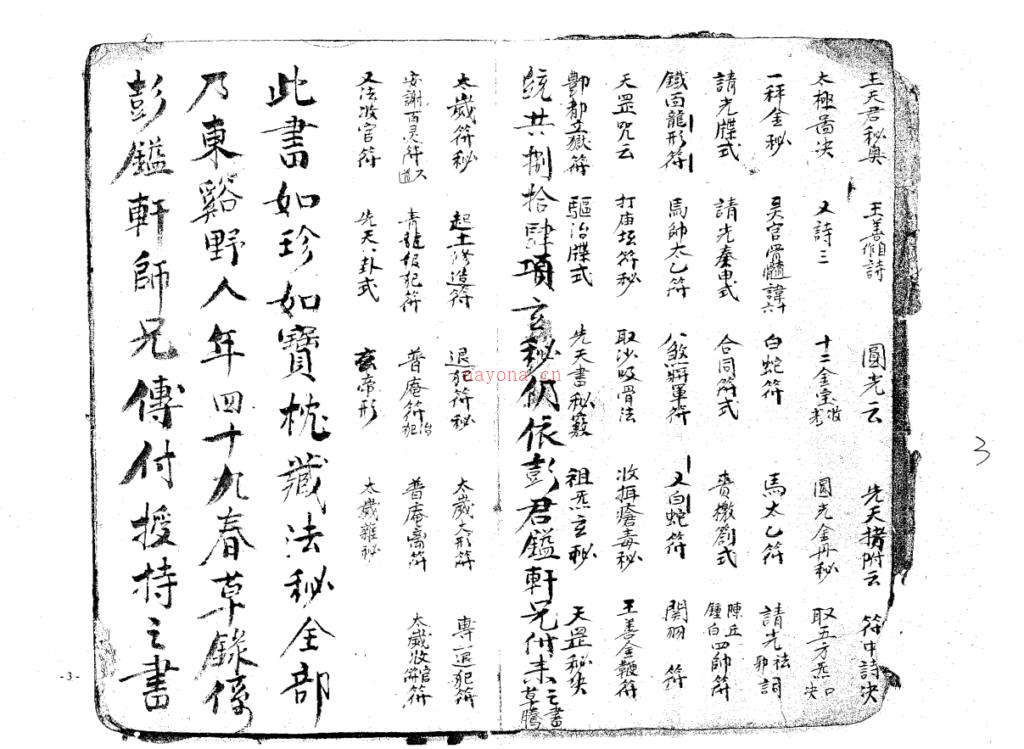 王天君秘奥 王善咱詩 圓光云 先天撍附云 符中詩决
太極啚决 又詩三 十二金堂 圓光金丹秘 取五方炁口决
一秤金秘 吴官骨髓諱 白蛇符 馬太乙符 請光祛邪詞
請光牒式 請光奏申式 合同符式 賫檄劄式 陳丘鍾白四帥符
鐵面龍形符 馬帥太乙符 八煞將軍符 又白蛇符 関羽符
天罡咒云 打庙坛符秘 取沙吸骨法 收搆瘡毒秘 王善金鞭符
酆都立嶽符 驅治牒式 先天書秘竅 祖炁玄秘 天罡秘
統共捌拾肆項玄秘仍依彭君鎰軒兄付来之書草騰
太歲符秘 起土修造符 退犯符秘 太歲大形符 專一退犯符
安謝百灵符 青龍报犯符 普庵符治犯 普庵斋符 太歲收官符
又法收官符 先天八卦式 玄帝形 太歲雜秘
此書如珍如寶枕藏法秘全部
乃東谿野人年四十九春草錄係
彭鎰軒師兄傳付授持之書
3
-3-
nayona.cn